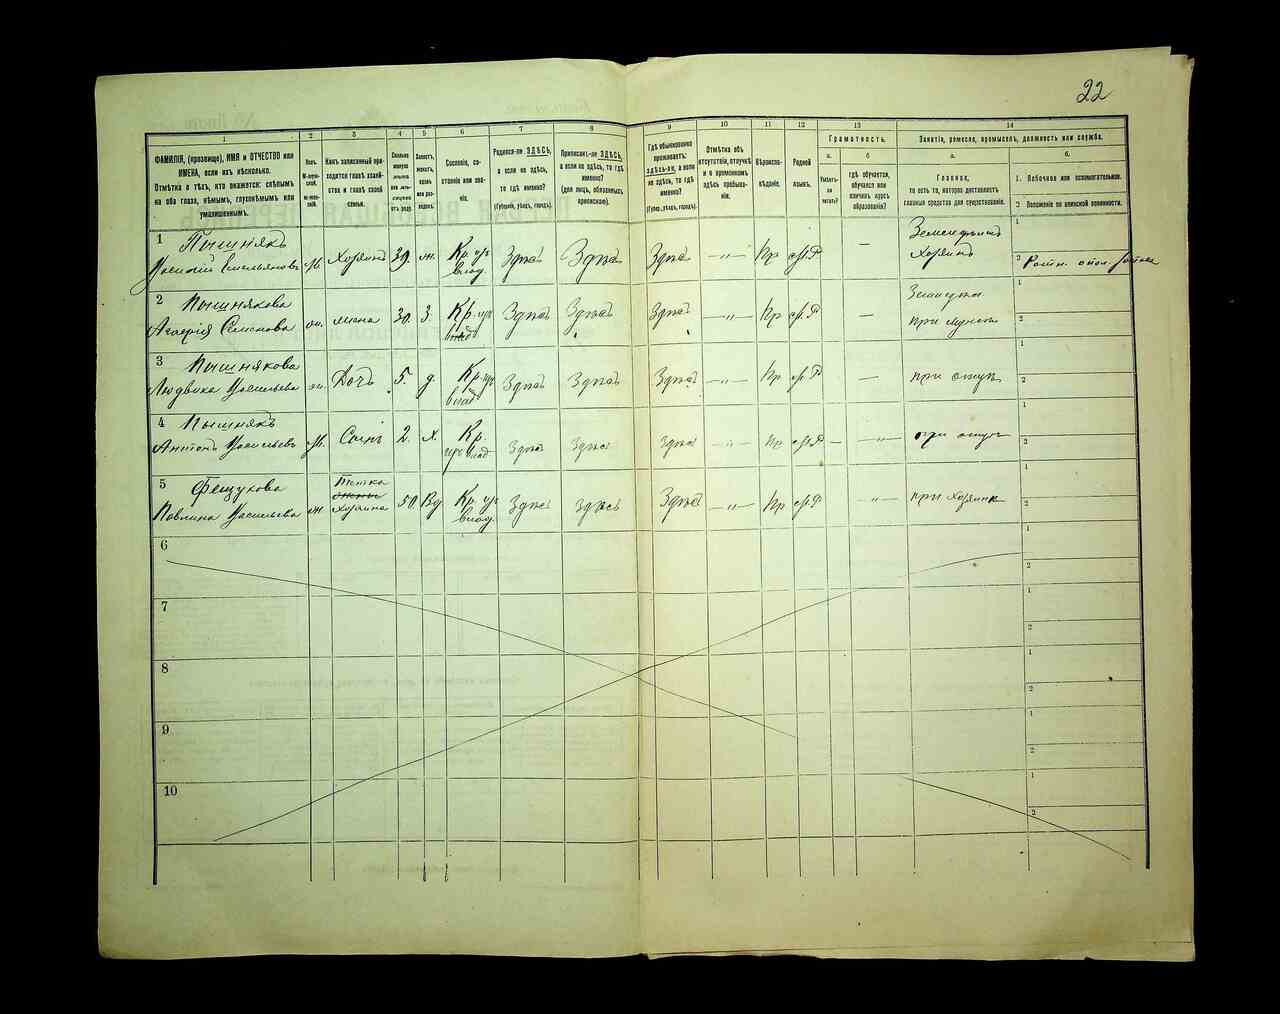 22
1 2 3 4 5 6 7 8 9 10 11 12 13 14
ФАМИЛІЯ, (прозвище), ИМЯ и ОТЧЕСТВО или
ИМЕНА, если ихъ нѣсколько.
Отмѣтка о тѣхъ, кто окажется: слѣпымъ
на оба глаза, нѣмымъ, глухонѣмымъ или
умалишеннымъ.
Полъ.
М-мужской.
Ж-женскій.
Какъ записанный приходится
главѣ хозяйства и главѣ своей
семьи.
Сколько
минуло
лѣтъ
Холостъ,
женатъ,
вдовъ
или разведенъ.
Сословіе, состояніе
или званіе.
Родился-ли ЗДѢСЬ,
а если не здѣсь,
то гдѣ именно?
(Губернія, уѣздъ, городъ).
Приписанъ-ли ЗДѢСЬ,
а если не здѣсь, то гдѣ
именно?
(для лицъ, обязанныхъ
припискою).
Гдѣ обыкновенно
проживаетъ:
ЗДѢСЬ-ли, а если
не здѣсь, то гдѣ
именно?
(Губер., уѣздъ, городъ).
Отмѣтка объ
отсутствіи, отлучкѣ
и о временномъ
здѣсь пребываніи.
Вѣроисповѣданіе.
Родной
языкъ.
Грамотность.
а.
Умѣетъ-ли
читать?
б.
гдѣ обучается,
обучался или
кончилъ курсъ
образованія?
Занятіе, ремесло, промыселъ, должность или служба.
а.
Главное,
то есть то, которое доставляетъ
главныя средства для существованія.
б.
1. Побочное или вспомогательное.
2. Положеніе по воинской повинности.
1 Пышнякъ Земледѣлецъ 1
Василій Емельяновъ м. Хозяинъ 39. ж. Кр. из влад. Здѣсь Здѣсь Здѣсь —"— Пр М.Р — Хозяинъ 2
2 Пышнякова 1
Семенова жена 30. З. Кр. из влад Здѣсь Здѣсь Здѣсь —"— Пр М.Р — при мужѣ 2
3 Пышнякова 1
Людвика Васильева ж. Дочь 5. д. Кр. из влад Здѣсь Здѣсь Здѣсь —"— Пр М.Р — при отцѣ 2
4 Пышнякъ 1
Антонъ Васильевъ М. Сынъ 2. Х. Кр. из влад Здѣсь Здѣсь Здѣсь —"— Пр М.Р — —"— при отцѣ 2
5 Фещукова Тетка 1
Павлина Васильева ж хозяина 50. Вд Кр из влад. Здѣсь Здѣсь Здѣсь —"— Пр М.Р —"— при хозяинѣ 2
6 1
2
7 1
2
8 1
2
9 1
2
10 1
2